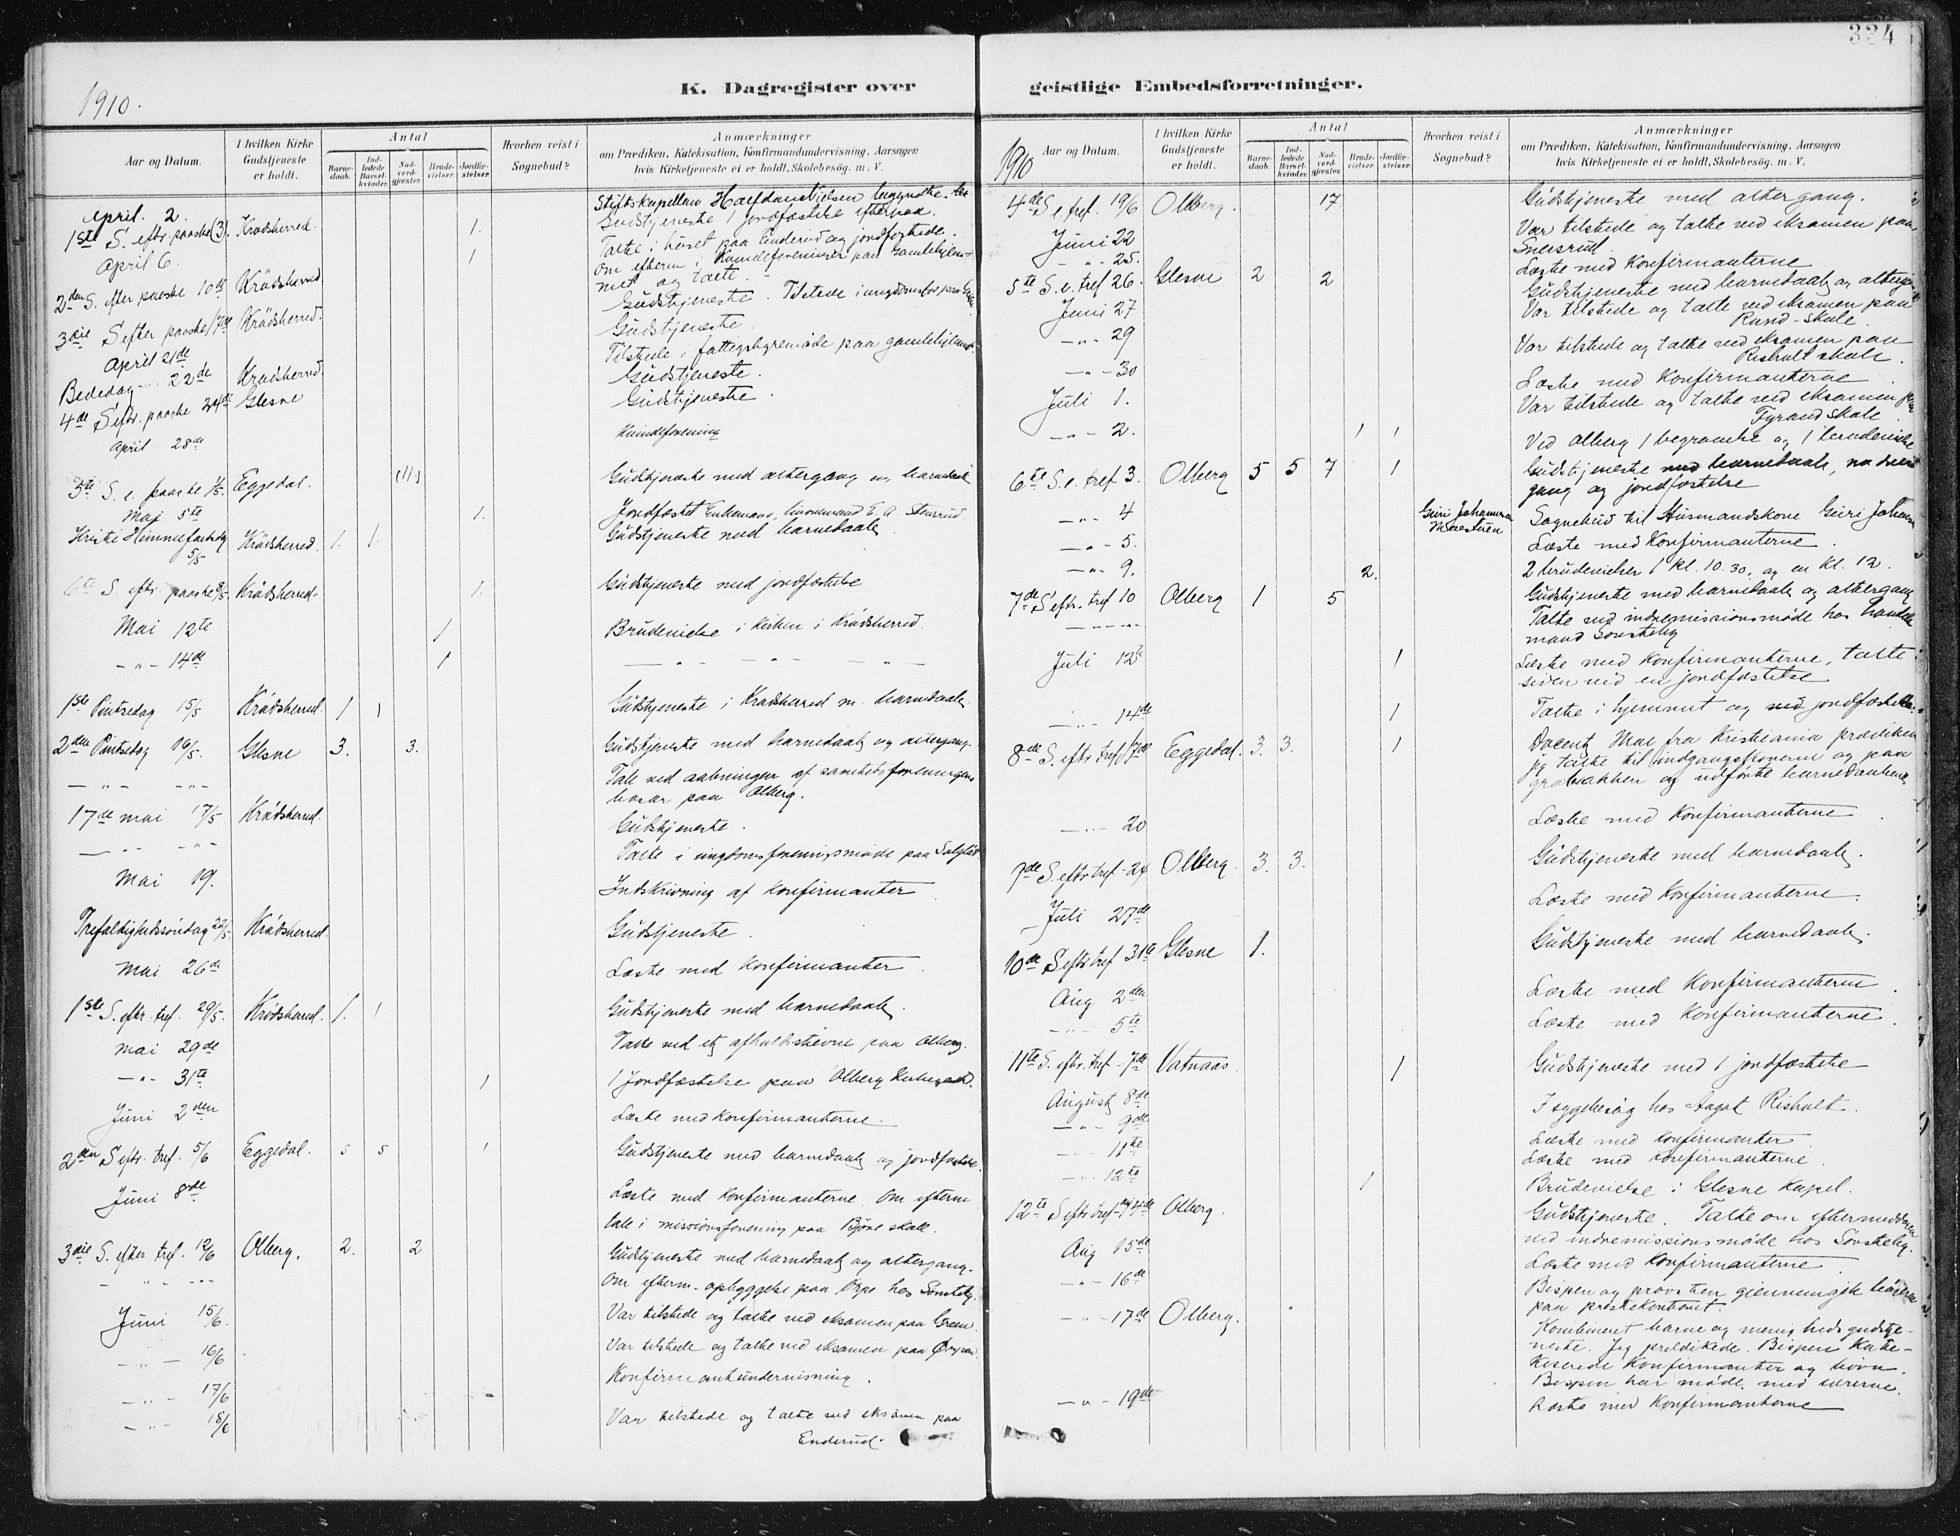 324
1910.
K. Dagregister over
Aar og Datum.
I hvilken Kirke Gudstjeneste er holdt.
Antal
Barnedaab.
Indledede Barselkvinder.
Nadverdgjester.
Brudevielser.
Jordfæstelser.
Hvorhen reist i Sognebud?
Anmærkninger
om Prædiken, Katekisation, Konfirmandundervisning, Aarsagen
hvis Kirketjeneste ei er holdt, Skolebesög. m. V.
April. 2. Stiftskapellan Halfdan Nielsen begyndte
1ste S. eftr. paaske (3). Krødsherred. 1. Gudstjeneste 1 jordfæstelse efterpaa.
April 6. 1 Talte i huset paa Enderud og jordfæstede.
om efterm. i Kvindeforeninger paa Gamlehjemmet og talte.
2den S. efter paaske 10de Krødsherred Gudstjeneste. Tilstede i ungdomsfor. paa
3die S efter paaske 17de Krødsherred. Gudstjeneste.
April 21de Tilstede i fattigstyremøde paa gamlehjemmet.
Bededag 22de Krødsherred Gudstjeneste.
4de S eftr. paaske 24de Glesne Gudstjeneste.
April 28de Kvindeforening
5te S. e. paaske 1/5. Eggedal. Gudstjeneste med altergang og barnedaab
Mai 5te 1. Jordfæstet Enkemand, E. A. Stensrud
Kristi Himmelfartsdag 5/5 Krødsherred. 1. 1. Gudstjeneste med barnedaab.
6te S. eftr paaske 8/5 Krødsherred. 1. Gudstjeneste med jordfæstelse
Mai 12te 1 Brudevielse i kirken i Krødsherred.
- " - 14de 1 - " - " - " -
1ste Pintsedag 15/5 Krødsherred. 1 1 Gudstjeneste i Krødsherred m. barnedaab.
2den Pintsedag 16/5. Glesne 3. 3. Gudstjeneste med barnedaab og altergang.
- " - - " - Tale ved aabningen af sanitetsforeningens
basar paa Olberg.
17de mai 17/5 Krødsherred. Gudstjeneste.
- " - - " - Talte i ungdomsforeningsmøde paa
Mai 19. Indskrivning af Konfirmanter
Trefaldighedssøndag 22/5. Krødsherred. Gudstjeneste.
Mai 26de Læste med Konfirmanter.
1ste S. eftr. tref. 29/5. Krødsherred. 1. 1 Gudstjeneste med barnedaab.
Mai 29de Talte ved et afholdsstevne paa Olberg.
- " - 31te 1 1 Jordfæstelse paa Olberg Kirkegaard.
Juni 2den Læste med Konfirmanterne.
2den S eftr. tref. 5/6 Eggedal. 5 5 1 Gudstjeneste med barnedaab og jordfæstelse.
Juni 8de Læste med Konfirmanterne. Om efterm.
tale i missionsforening paa Bjøre skole.
3die S. efter tref. 12/6 Olberg. 2. 2 Gudstjeneste med barnedaab og altergang.
- " - " - Om efterm. opbyggelse paa Orpe hos Sønsteby.
Juni 15/6. Var tilstede og talte ved eksamen paa Green.
- " - 16/6 Var tilstede og talte ved eksamen paa
- " - 17/6 Konfirmantundervisning.
- " - 18/6 Var tilstede og talte ved eksamen paa
Enderud.
geistlige Embedsforretninger.
1910
Aar og Datum.
I hvilken Kirke Gudstjeneste er holdt.
Antal
Barnedaab.
Indledede Barselkvinder.
Nadverdgjester.
Brudevielser.
Jordfæstelser.
Hvorhen reist i Sognebud?
Anmærkninger
om Prædiken, Katekisation, Konfirmandundervisning, Aarsagen
hvis Kirketjeneste ei er holdt, Skolebesög. m. V.
4de S e tref. 19/6 Olberg. 17 Gudstjeneste med altergang.
Juni 22 Var tilstede og talte ved eksamen paa
Snersrud.
- " - 25. Læste med Konfirmanterne
5te S. e. tref 26. Glesne 2 2 Gudstjeneste med barnedaab og altergang
Juni 27 Var tilstede og talte ved eksamen paa
Rund-skole.
- " - 29 Var tilstede og talte ved eksamen paa
Risholt skole.
- " - 30 Læste med Konfirmanterne
Juli 1. Var tilstede og talte ved eksamen paa
Fyrand skole.
- " - 2. 1 1 Ved Olberg 1 begravelse og 1 brudevielse
6te S. e. tref 3. Olberg 5 5 7 1 Gudstjeneste med barnedaab, nadver-
gang og jordfæstelse
- " - 4 Guri Johannesen Maestuen Sognebud til Husmandskone Guri Johann
- " - 5. Læste med Konfirmanterne.
- " - 9. 2. 2 brudevielser 1 kl. 10.30. og en kl. 12.
7de S eftr. tref 10 Olberg 1 5 Gudstjeneste med barnedaab og altergang
- " - " - Talte ved indremissionsmøde hos handels
mand Sønsteby
Juli 12te 1 Læste med Konfirmanterne, talte
siden ved en jordfæstelse
- " - 14de 1 Talte i hjemmet og ved jordfæstelse.
8de S eftr tref 17de Eggedal. 3. 3. 1 Docent Moe fra Kristiania prædiken
jeg talte til indgangskonerne og paa
gravbakken og udførte barnedaabene
- " - 20 Læste med Konfirmanterne
9de S. eftr tref - 24 Olberg. 3. 3. Gudstjeneste med barnedaab.
Juli 27de Læste med Konfirmanterne.
10de S eftr tref 31te Glesne 1. Gudstjeneste med barnedaab.
Aug 2den Læste med Konfirmanterne.
- " - 5te Læste med Konfirmanterne.
11te S. eftr. tref - 7de Vatnaas. 1 Gudstjeneste med 1 jordfæstelse
August 8de I sygebesøg hos Aagot Risholt.
- " - 9de Læste med Konfirmanter
- " - 11te Læste med Konfirmanterne.
- " - 12te 1 Brudevielse i Glesne Kapel.
12te S eftr tref - 14de Olberg. Gudstjeneste. Talte om eftermiddagen
ved indremissionsmøde hos Sønsteby.
Aug 15de Læste med Konfirmanterne
- " - 16de Bispen og provsten gjennemgik bøgerne
paa prestekontoret
- " - 17de Olberg. Kombineret barne og menighedsgudstje-
neste. Jeg prædikede. Bispen Kate-
kiserede Konfirmanter og børn.
Bispen har møde med lærerne.
- " - 19de Læste med Konfirmanterne